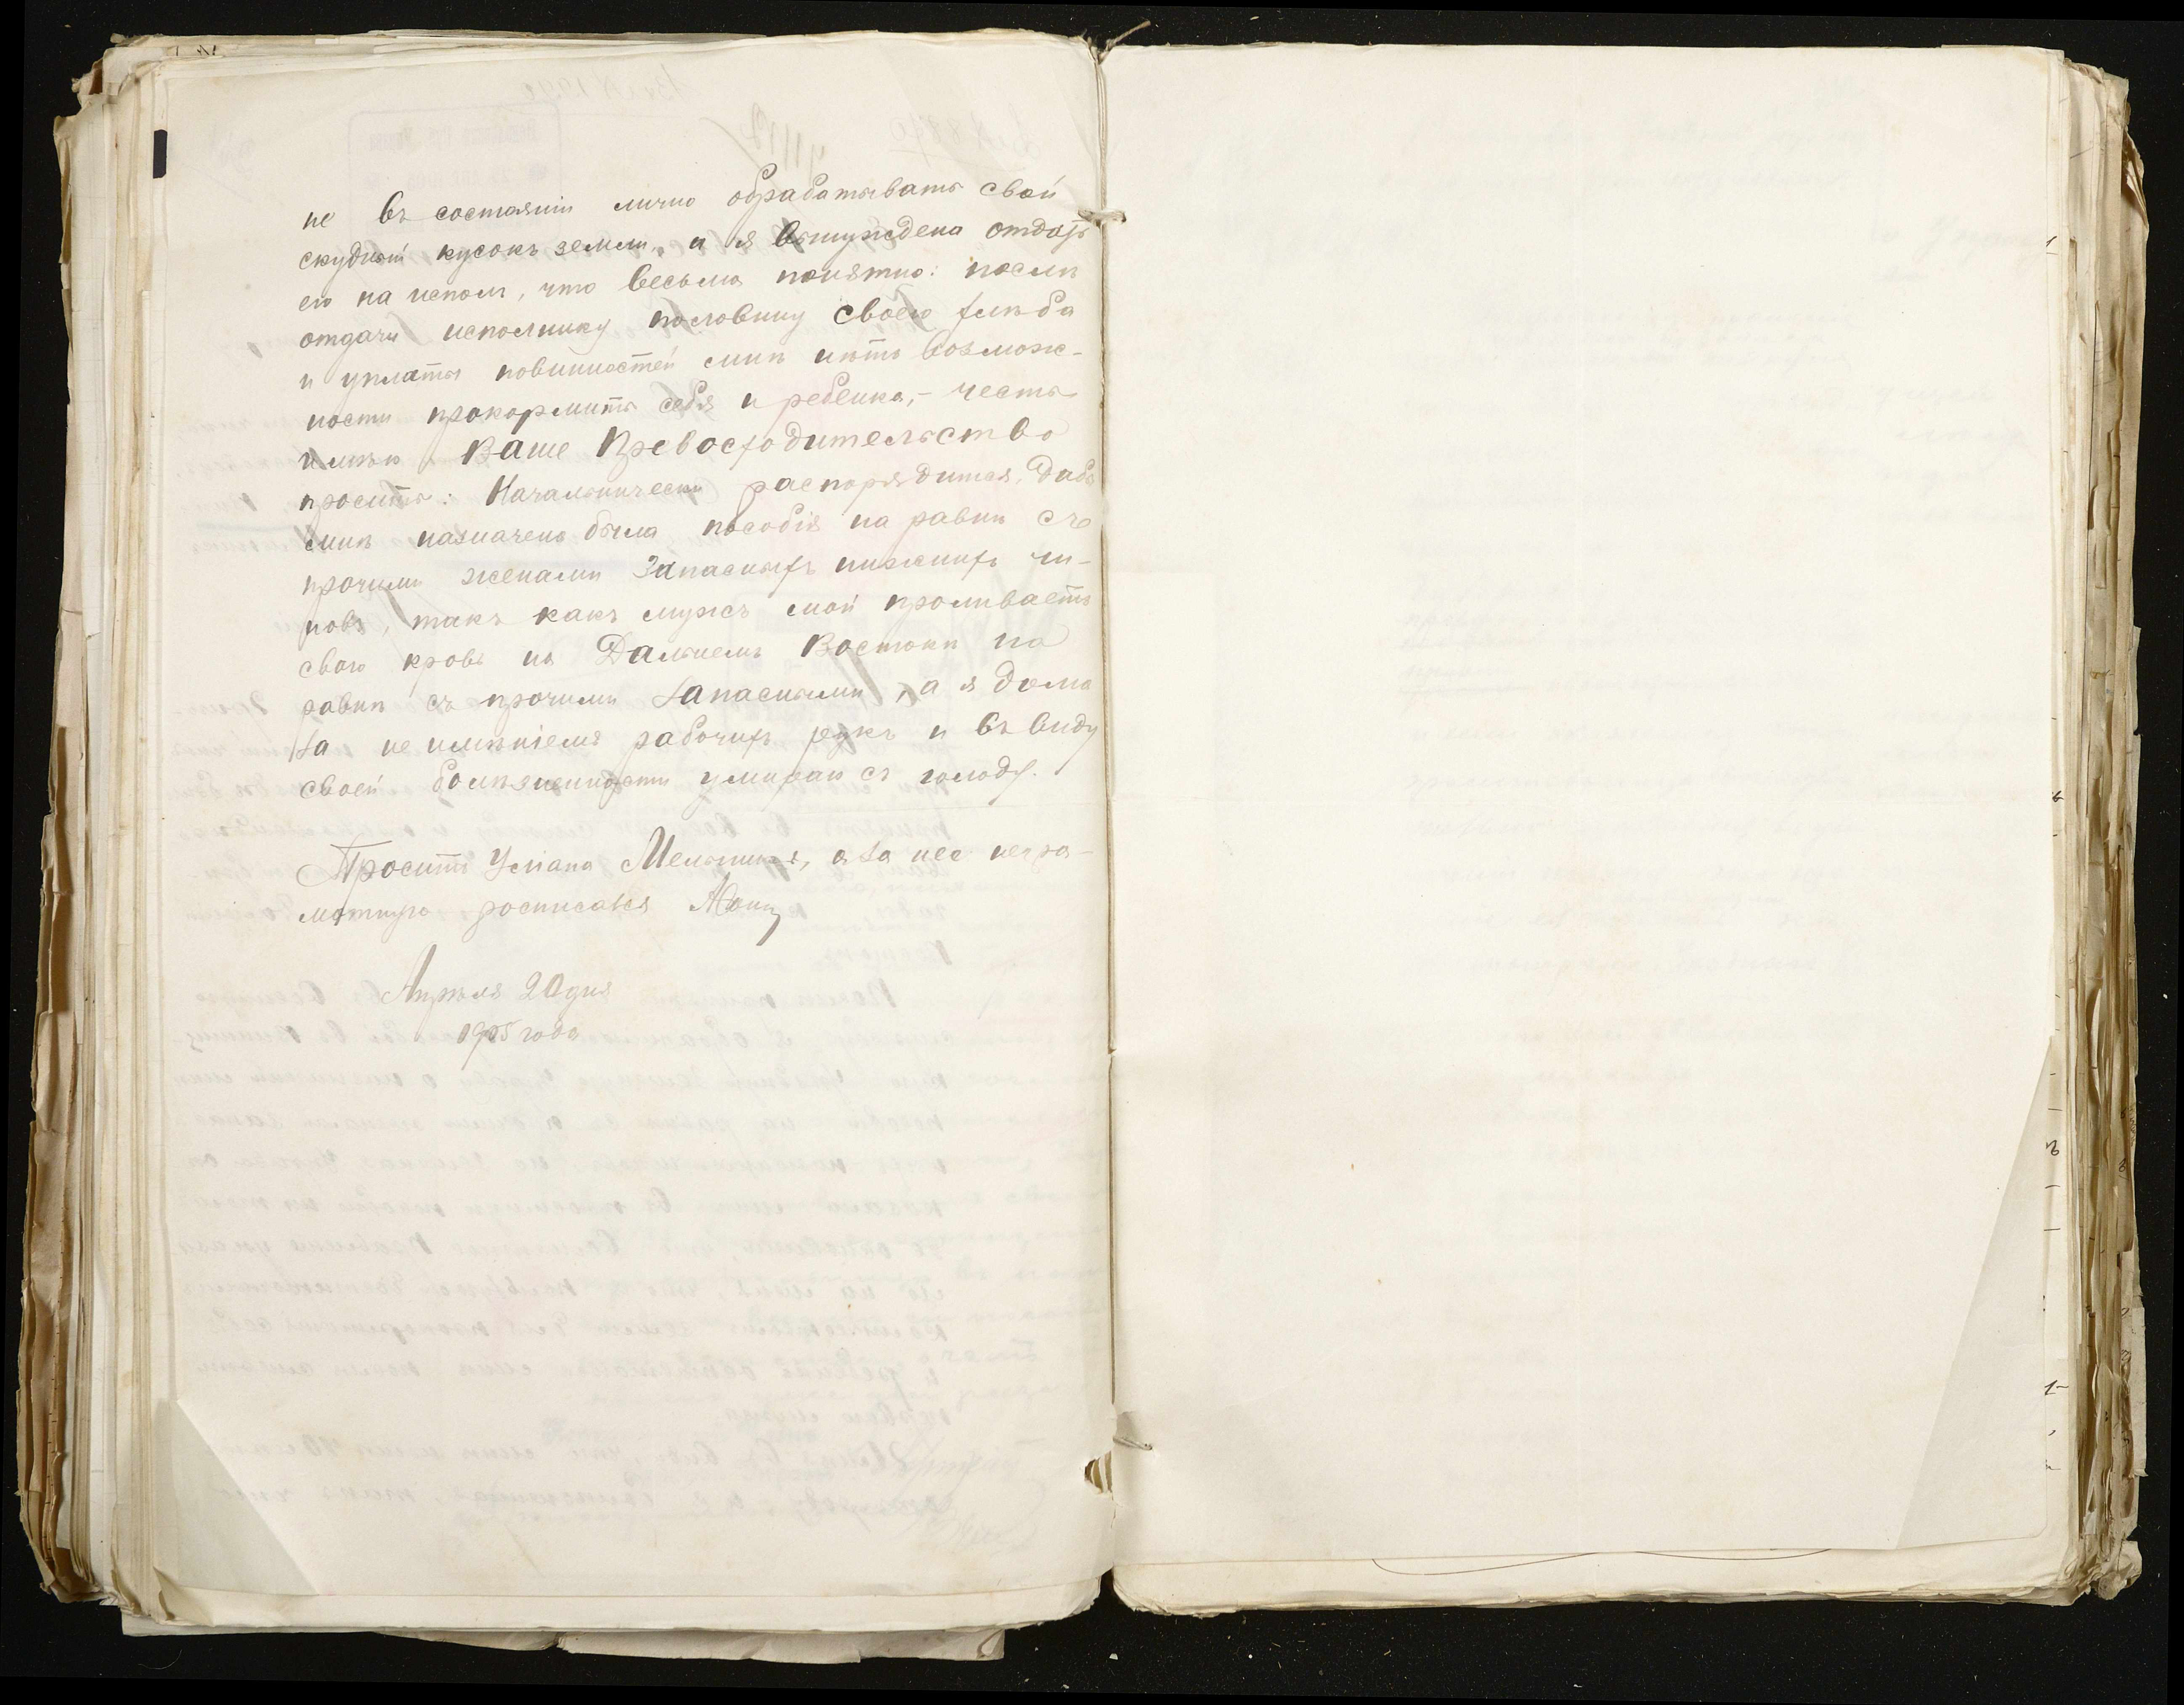 не въ состояніи лично обрабатывать свой
скудный кусокъ земли, и я вынуждена отдать
его на исполъ, что весьма понятно: послѣ
отдачи испольнику половину своего хлѣба
и уплаты повинностей мнѣ нѣтъ возмож-
ности прокормить себя и ребенка, – честь
имѣю Ваше Превосходительство
просить: Начальнически распорядится, дабы
мнѣ назначено была пособія на равнѣ съ
прочими женами Запасныхъ нижнихъ чи-
новъ, такъ какъ мужъ мой проливаетъ
свою кровь на Дальнемъ Востокѣ на
равнѣ съ прочими запасными, а я дома
за не имѣніемъ рабочихъ рукъ и въ виду
своей болѣзненности умираю съ голоду.
Проситъ Ульяна Мельникъ, а за нее негра-
мотную росписался
Апрѣля 20 дня
1905 года